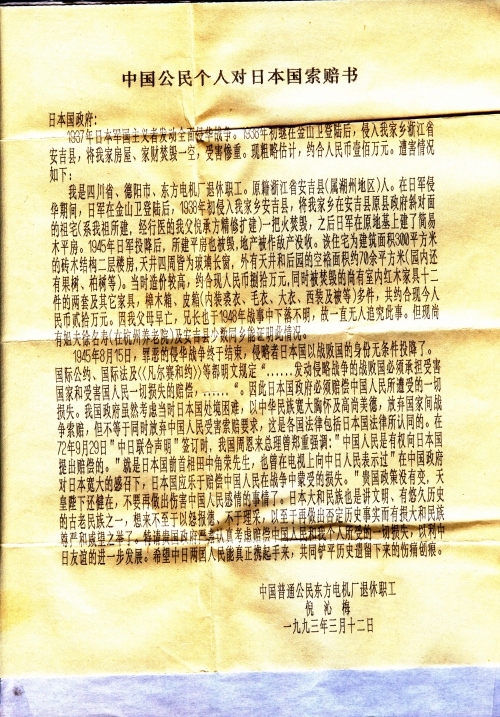 中国公民个人对日本国索赔书
日本国政府：
1937年日本军国主义者发动全面侵华战争。1938年初继在金山卫登陆后，侵入我家乡浙江省
安吉县，将我家房屋、家财焚毁一空，受害惨重。现粗略估计，约合人民币壹佰万元。遭害情况
如下：
我是四川省、德阳市、东方电机厂退休职工。原籍浙江省安吉县(属湖州地区)人。在日军侵
华期间，日军在金山卫登陆后，1938年初侵入我家乡安吉县，将我家乡在安吉县原县政府斜对面
的祖宅(系我祖所建，经行医的我父倪承方精修扩建)一把火焚毁，之后日军在原地基上建了简易
木平房。1945年日军投降后，所建平房也被毁,地产被作敌产没收。该住宅为建筑面积300平方米
的砖木结构二层楼房,天井四周皆为玻璃长窗，外有天井和后园的空裕面积约70余平方米(园内还
有果树、柏树等)。当时造价较高，约合现人民币捌拾万元,同时被焚毁的尚有室内红木家具十二
件的两套及其它家具，樟木箱、皮箱(内装裘衣、毛衣、大衣、西装及被等)多件，共约合现今人
民币贰拾万元。因我父母早亡，兄长也于1948年战事中下落不明，故一直无人追究此事。但现尚
有姐夫徐名寿(在杭州养老院)及安吉县少数同乡能证明此情况。
1945年8月15日，罪恶的侵华战争终于结束，侵略者日本国以战败国的身份无条件投降了。
国际公约、国际法及(《凡尔赛和约》)等都明文规定“……发动侵略战争的战败国必须承担受害
国家和受害国人民一切损失的赔偿，……“。因此日本国政府必须赔偿中国人民所遭受的一切
损失。我国政府虽然考虑当时日本国处境困难，以中华民族宽大胸怀及高尚美德，放弃国家间战
争索赔，但不等于同时放弃中国人民受害索赔要求，这是各国法律包括日本国法律所认同的。在
72年9月29日”中日联合声明”签订时，我国周恩来总理曾郑重强调:”中国人民是有权向日本国
提出赔偿的。”就是日本国前首相田中角荣先生，也曾在电机上向中日人民表示过”在中国政府
对日本宽大的感召下，日本国应乐于赔偿中国人民在战争中蒙受的损失。”贵国政策没有变，天
皇陛下还健在，不要再做出伤害中国人民感情的事情了。日本大和民族也是讲文明、有悠久历史
的古老民族之一，想来不至于以怨报德，不于理采，以至于再做出否定历史事实而有损大和民族
尊严和威望之举了。特请贵国政府严肃认真考虑赔偿中国人民和我个人所受的一切损失，以利中
日友谊的进一步发展。希望中日两国人民能真正携起手来，共同铲平历史遗留下来的伤痛创痕。
中国普通公民东方电机厂退休职工
倪 沁 梅
一九九三年三月十二日